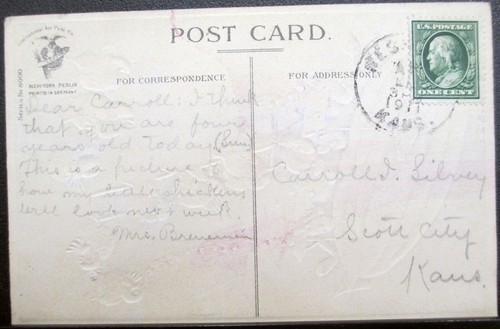 POST CARD.
International Art Pub. Co.
NEW-YORK, BERLIN
PRINTED IN GERMANY
FOR CORRESPONDENCE
FOR ADDRESS ONLY
U.S. POSTAGE
ONE CENT
1911
KANS.
Dear Carroll: I think
that you are four
years old today (Sun.
This is a picture of
how my little chickens
will look next week.
Mrs.
Carroll I. Silvey
Scott City
Kans.